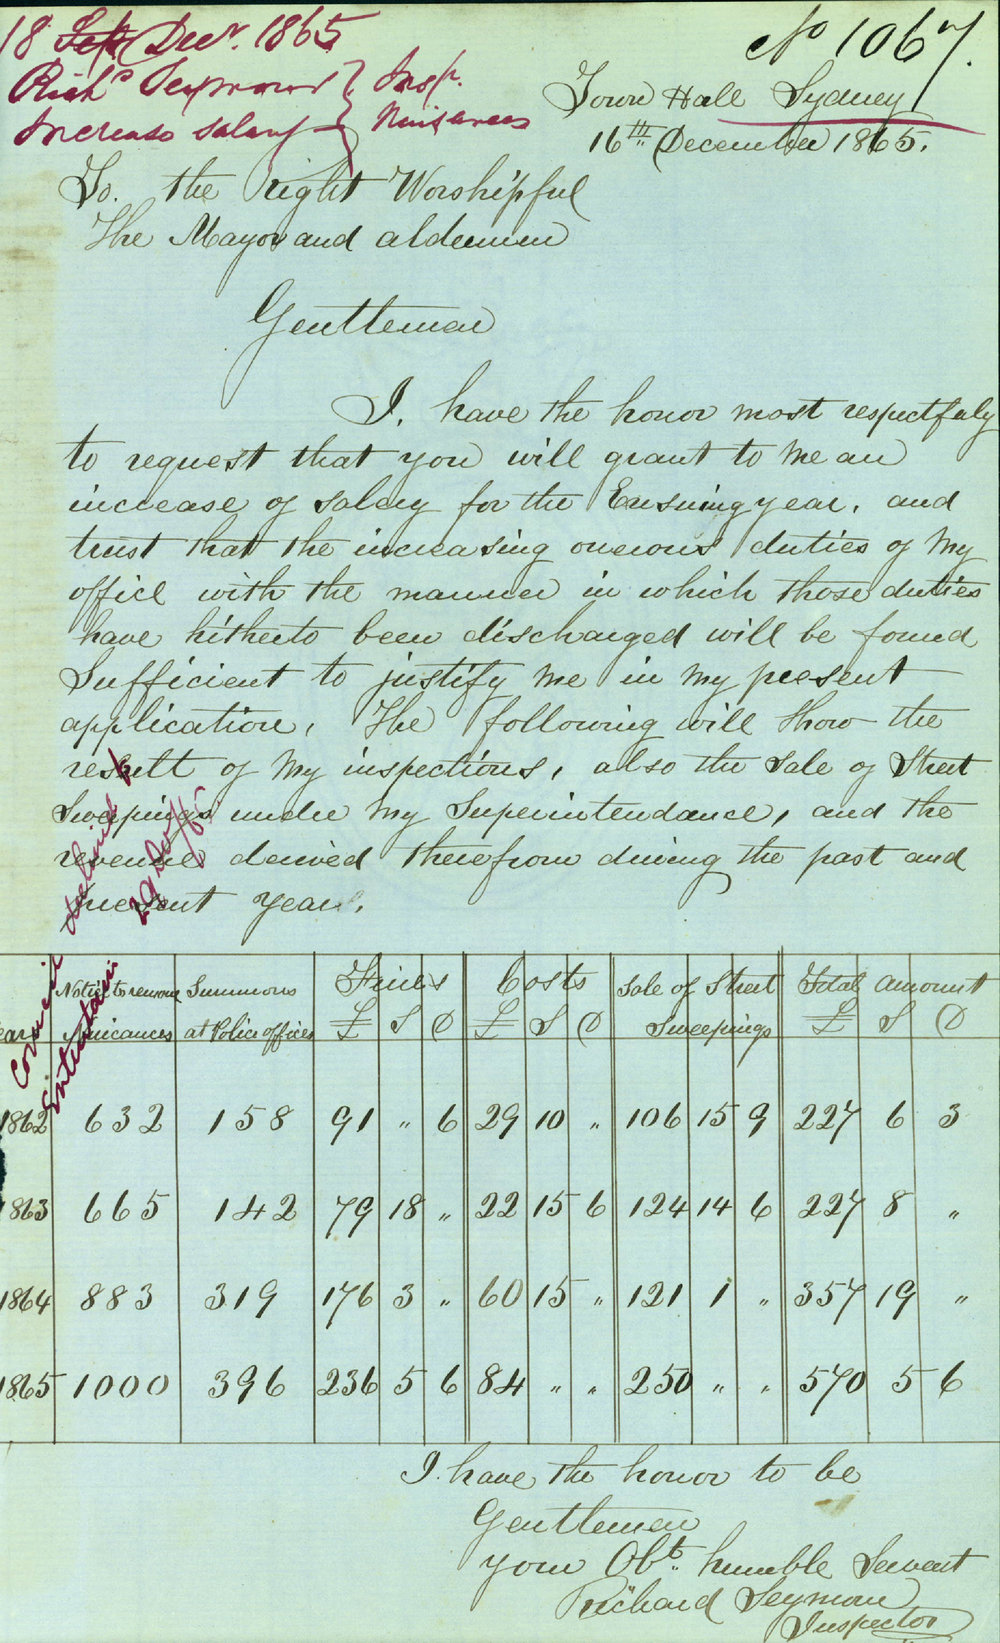 18 Sept Decr. 1865
No 1067.
Richd Seymour } Insp.
Increase salary } Nuisances
Town Hall Sydney
16th December 1865.
To. the right Worshipful
The Mayor and aldermen
Gentlemen
I. have the honor most respectfuly
to request that you will grant to me an
increase of salary for the Ensuing year. and
trust that the increasing onerous duties of my
office with the manner in which those duties
have hitherto been discharged will be found
Sufficient to justify me in my present
application. The following will show the
result of my inspections, also the Sale of Street
Sweepings under my Superintendance, and the
revenue derived therefrom during the past and
present years.
Council declined to
Entertain 29 Dec/65
Years Notice to remove Summons Fines Costs Sale of Street Total amount
Nuicances at Police offices £ S D £ S D Sweepings £ S D
1862 632 158 91 " 6 29 10 " 106 15 9 227 6 3
1863 665 142 79 18 " 22 15 6 124 14 6 227 8 "
1864 883 319 176 3 " 60 15 " 121 1 " 357 19 "
1865 1000 396 236 5 6 84 " " 250 " " 570 5 6
I. have the honor to be
Gentlemen
your Obt. humble Servant
Richard Seymour
Inspector